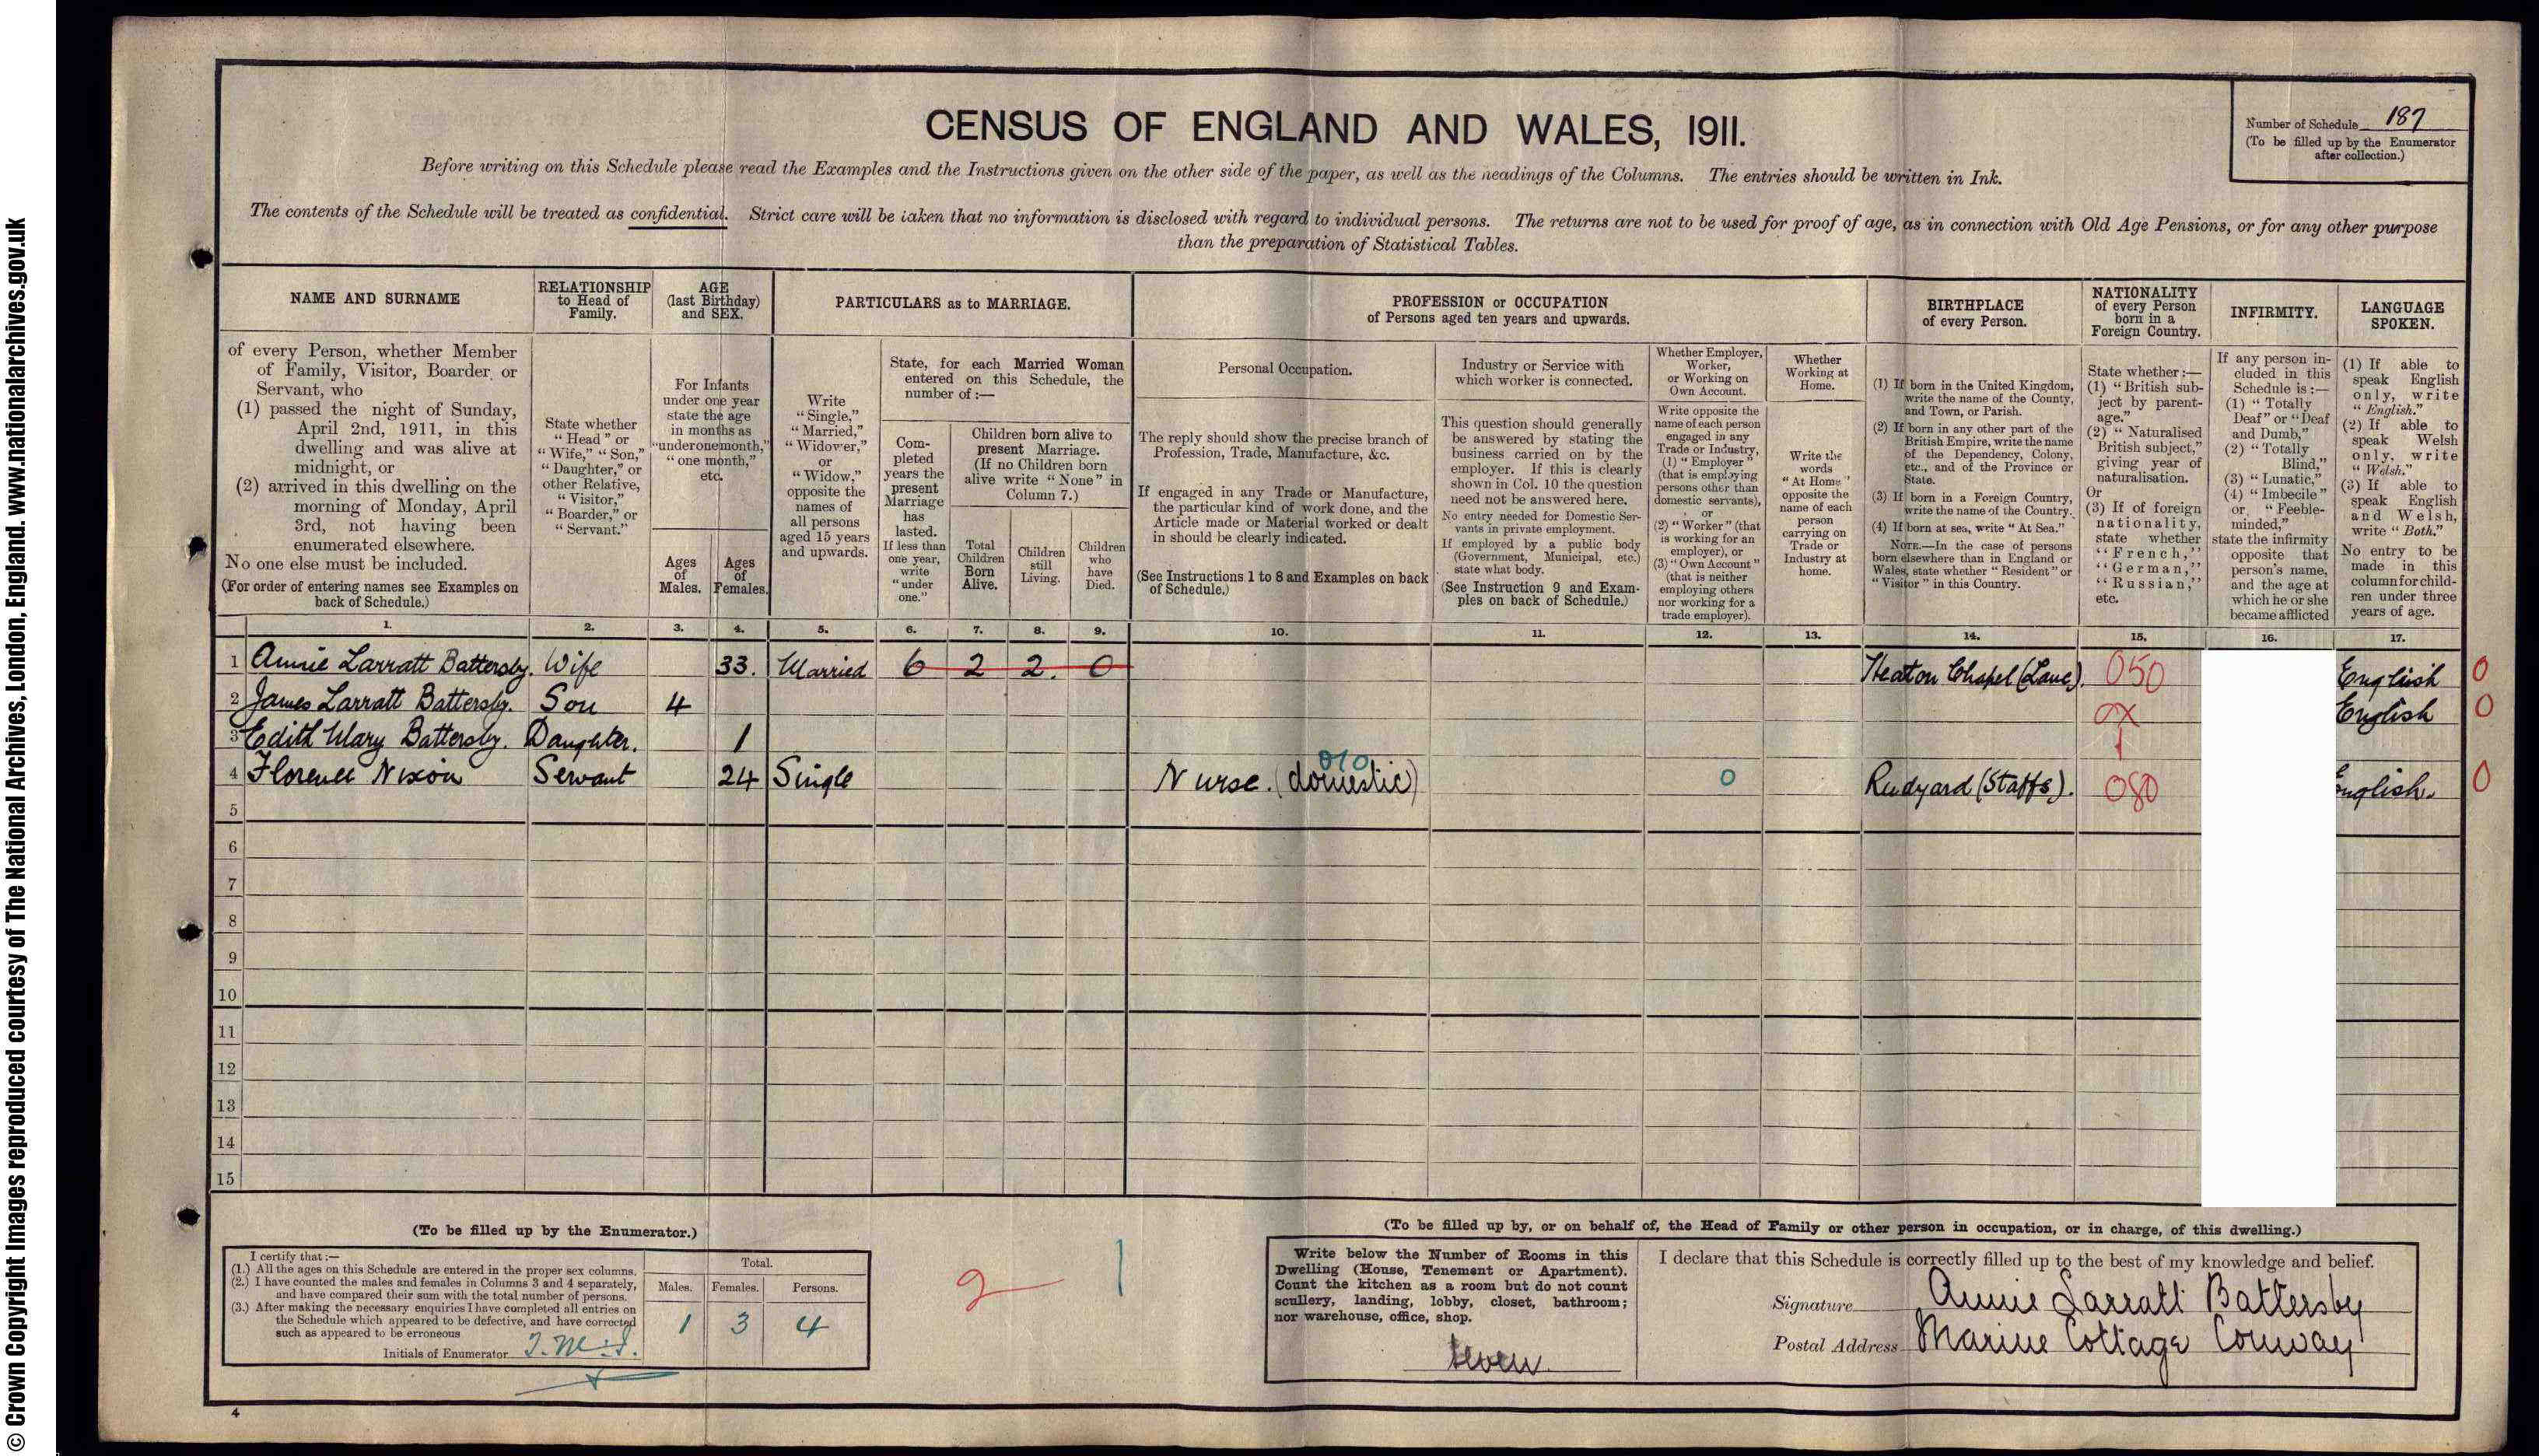 © Crown Copyright Images reproduced courtesy of The National Archives, London, England. www.nationalarchives.gov.uk
CENSUS OF ENGLAND AND WALES, 1911.
Number of Schedule 187
(To be filled up by the Enumerator
after collection.)
Before writing on this Schedule please read the Examples and the Instructions given on the other side of the paper, as well as the headings of the Columns. The entries should be written in Ink.
The contents of the Schedule will be treated as confidential. Strict care will be taken that no information is disclosed with regard to individual persons. The returns are not to be used for proof of age, as in connection with Old Age Pensions, or for any other purpose
than the preparation of Statistical Tables.
NAME AND SURNAME
of every Person, whether Member
of Family, Visitor, Boarder, or
Servant, who
(1) passed the night of Sunday,
April 2nd, 1911, in this
dwelling and was alive at
midnight, or
(2) arrived in this dwelling on the
morning of Monday, April
3rd, not having been
enumerated elsewhere.
No one else must be included.
(For order of entering names see Examples on
back of Schedule.)
1.
RELATIONSHIP
to Head of
Family.
State whether
"Head" or
"Wife," "Son,"
"Daughter," or
other Relative,
"Visitor,"
"Boarder," or
"Servant."
2.
AGE
(last Birthday)
and SEX.
For Infants
under one year
state the age
in months as
"under one month,"
"one month,"
etc.
Ages
of
Males.
3.
Ages
of
Females.
4.
PARTICULARS as to MARRIAGE.
Write
"Single,"
"Married,"
"Widower,"
or
"Widow,"
opposite the
names of
all persons
aged 15 years
and upwards.
5.
State, for each Married Woman
entered on this Schedule, the
number of :—
Com-
pleted
years the
present
Marriage
has
lasted.
If less than
one year,
write
"under
one."
6.
Children born alive to
present Marriage.
(If no Children born
alive write "None" in
Column 7.)
Total
Children
Born
Alive.
7.
Children
still
Living.
8.
Children
who
have
Died.
9.
PROFESSION or OCCUPATION
of Persons aged ten years and upwards.
Personal Occupation.
The reply should show the precise branch of
Profession, Trade, Manufacture, &c.
If engaged in any Trade or Manufacture,
the particular kind of work done, and the
Article made or Material worked or dealt
in should be clearly indicated.
(See Instructions 1 to 8 and Examples on back
of Schedule.)
10.
Industry or Service with
which worker is connected.
This question should generally
be answered by stating the
business carried on by the
employer. If this is clearly
shown in Col. 10 the question
need not be answered here.
No entry needed for Domestic Ser-
vants in private employment.
If employed by a public body
(Government, Municipal, etc.)
state what body.
(See Instruction 9 and Exam-
ples on back of Schedule.)
11.
Whether Employer,
Worker,
or Working on
Own Account.
Write opposite the
name of each person
engaged in any
Trade or Industry,
(1) "Employer"
(that is employing
persons other than
domestic servants),
or
(2) "Worker" (that
is working for an
employer), or
(3) "Own Account"
(that is neither
employing others
nor working for a
trade employer).
12.
Whether
Working at
Home.
Write the
words
"At Home"
opposite the
name of each
person
carrying on
Trade or
Industry at
home.
13.
BIRTHPLACE
of every Person.
(1) If born in the United Kingdom,
write the name of the County,
and Town, or Parish.
(2) If born in any other part of the
British Empire, write the name
of the Dependency, Colony,
etc., and of the Province or
State.
(3) If born in a Foreign Country,
write the name of the Country.
(4) If born at sea, write "At Sea."
NOTE.—In the case of persons
born elsewhere than in England or
Wales, state whether "Resident" or
"Visitor" in this Country.
14.
NATIONALITY
of every Person
born in a
Foreign Country.
State whether :—
(1) "British sub-
ject by parent-
age."
(2) "Naturalised
British subject,"
giving year of
naturalisation.
Or
(3) If of foreign
nationality,
state whether
"French,"
"German,"
"Russian,"
etc.
15.
INFIRMITY.
If any person in-
cluded in this
Schedule is :—
(1) "Totally
Deaf" or "Deaf
and Dumb,"
(2) "Totally
Blind,"
(3) "Lunatic,"
(4) "Imbecile"
or "Feeble-
minded,"
state the infirmity
opposite that
person's name,
and the age at
which he or she
became afflicted
16.
LANGUAGE
SPOKEN.
(1) If able to
speak English
only, write
"English."
(2) If able to
speak Welsh
only, write
"Welsh."
(3) If able to
speak English
and Welsh,
write "Both."
No entry to be
made in this
column for child-
ren under three
years of age.
17.
1 Annie Larratt Battersby. Wife 33. Married 6 2 2. 0 Heaton Chapel (Lanc). 050 English 0
2 James Larratt Battersby. Son 4 0X English 0
3 Edith Mary Battersby. Daughter. 1
4 Florence Nixon Servant 24 Single Nurse. (domestic) 010 0 Rudyard (Staffs). 080 English. 0
5
6
7
8
9
10
11
12
13
14
15
(To be filled up by the Enumerator.)
I certify that :—
(1.) All the ages on this Schedule are entered in the proper sex columns.
(2.) I have counted the males and females in Columns 3 and 4 separately,
and have compared their sum with the total number of persons.
(3.) After making the necessary enquiries I have completed all entries on
the Schedule which appeared to be defective, and have corrected
such as appeared to be erroneous
Initials of Enumerator
Total.
Males. Females. Persons.
1 3 4
2 1
(To be filled up by, or on behalf of, the Head of Family or other person in occupation, or in charge, of this dwelling.)
Write below the Number of Rooms in this
Dwelling (House, Tenement or Apartment).
Count the kitchen as a room but do not count
scullery, landing, lobby, closet, bathroom;
nor warehouse, office, shop.
seven.
I declare that this Schedule is correctly filled up to the best of my knowledge and belief.
Signature Annie Larratt Battersby
Postal Address Marine Cottage Conway
4